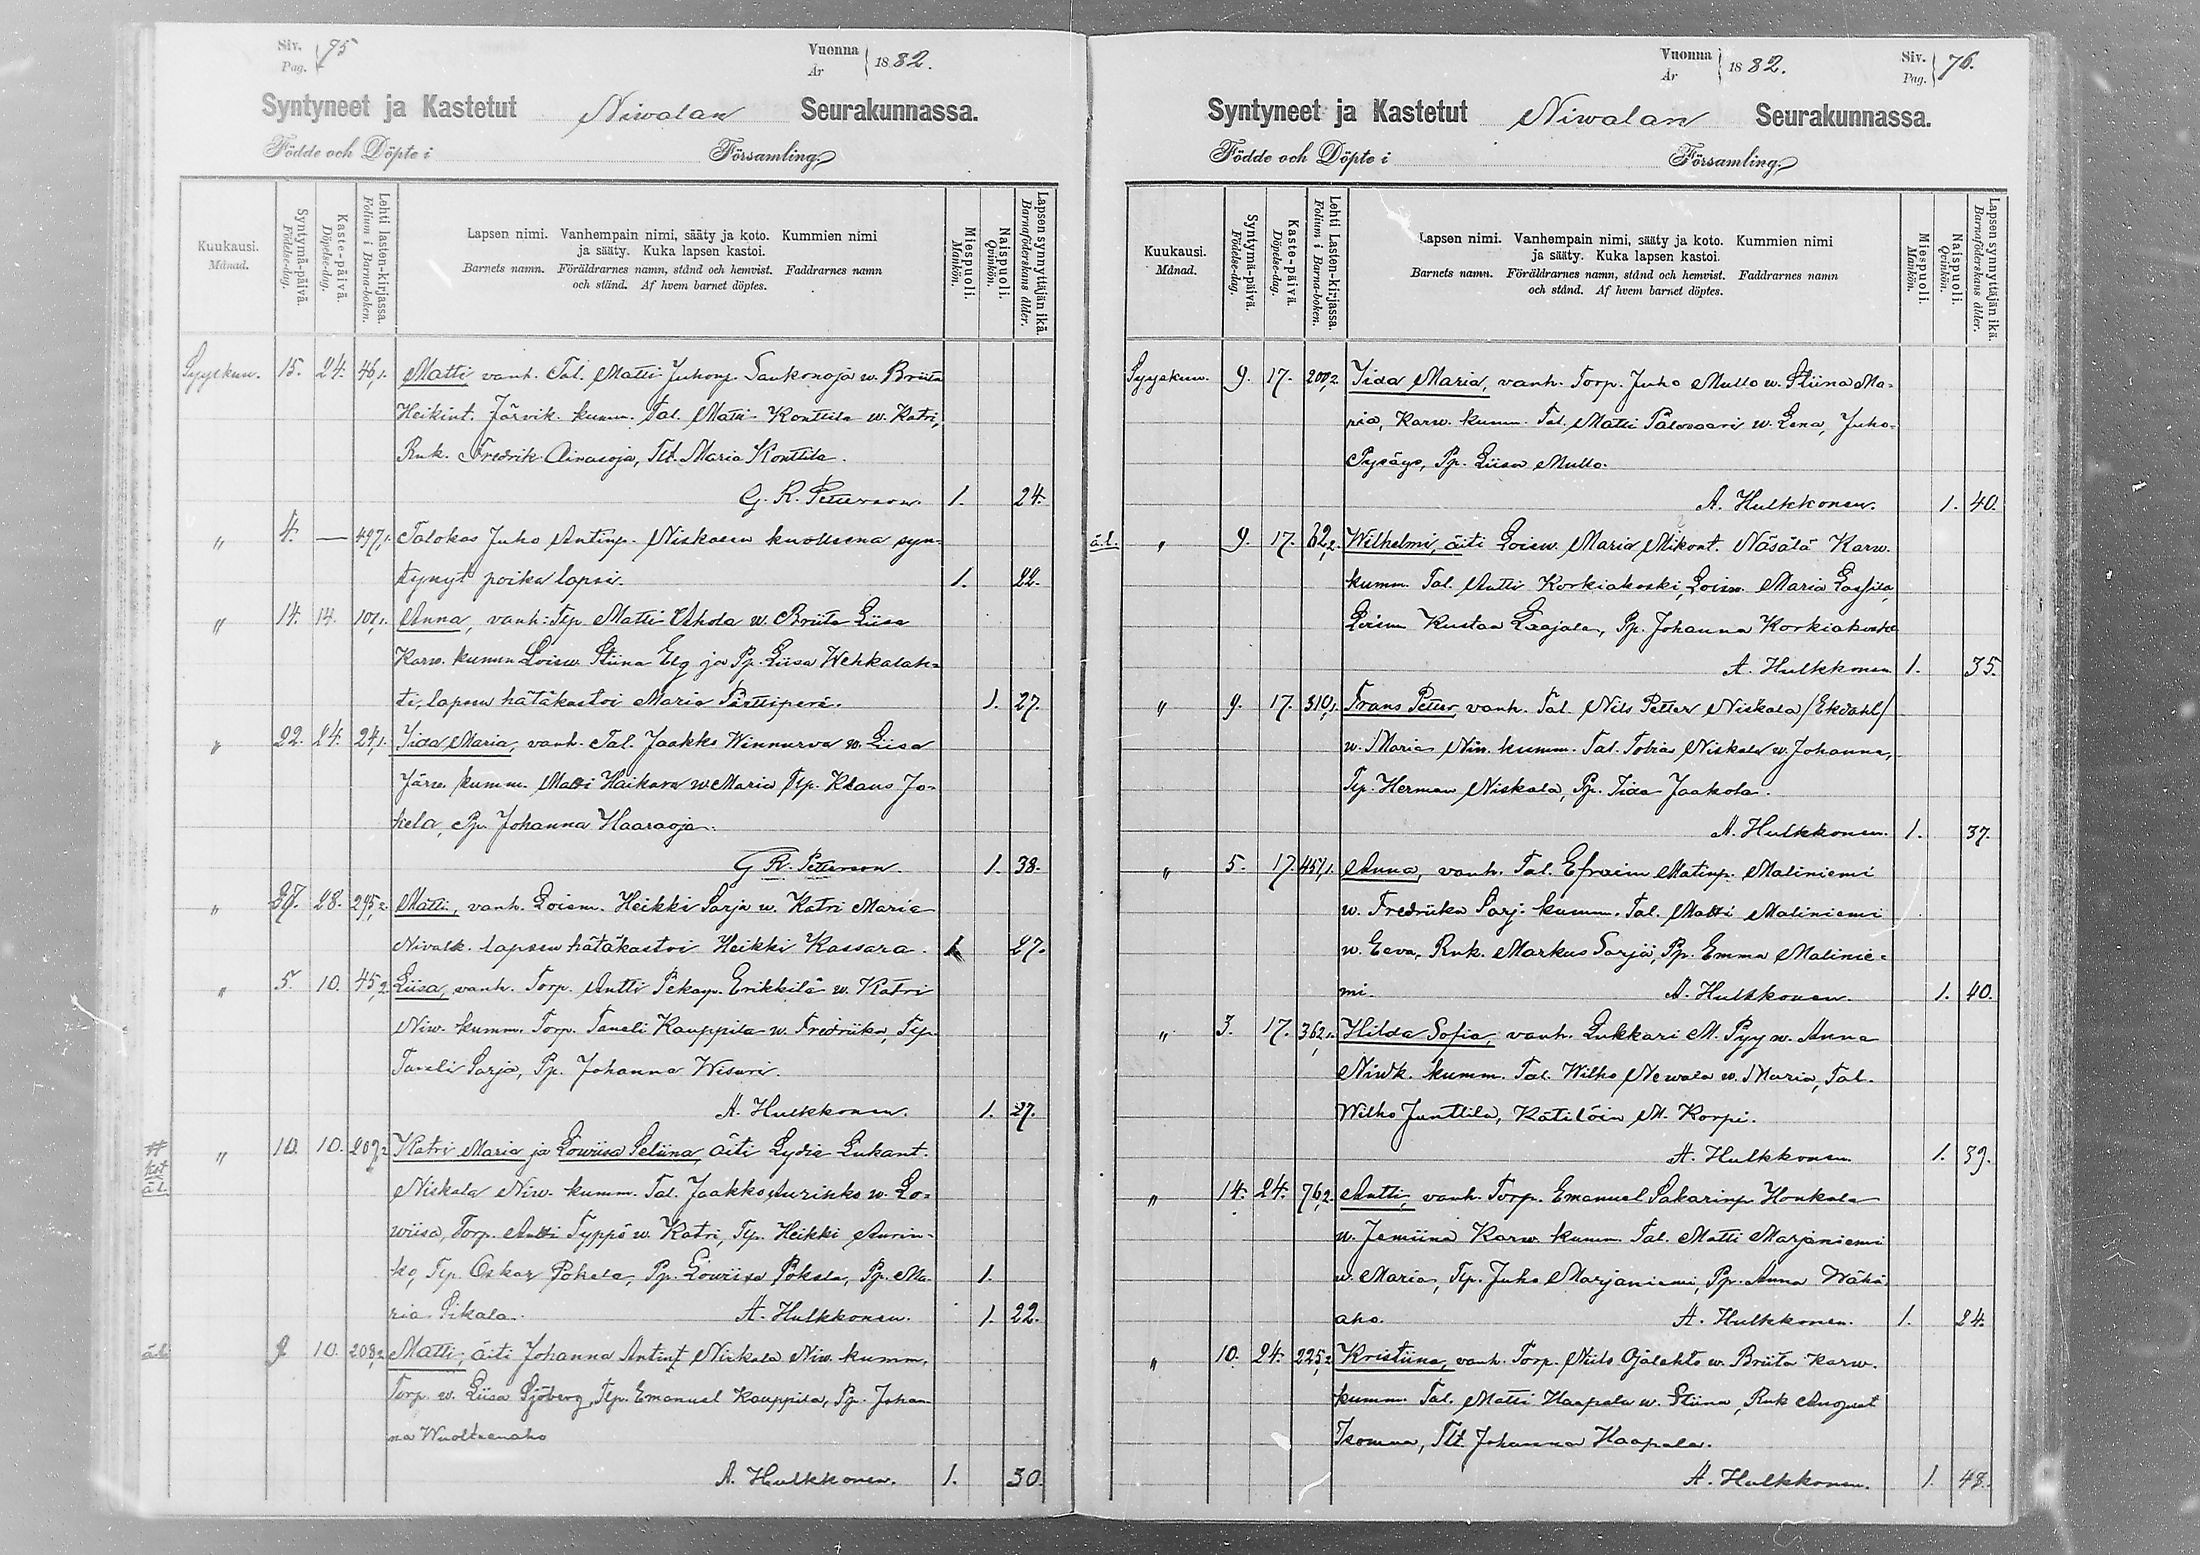 Siv. Pag. 75
Vuonna År 1882.
Syntyneet ja Kastetut Niwalan Seurakunnassa.
Födde och Döpte i Församling.
Kuukausi. Månad.
Syntymä-päivä. Födelse-dag.
Kaste-päivä. Döpelse-dag.
Lehti lasten-kirjassa. Folium i Barna-boken.
Lapsen nimi. Vanhempain nimi, sääty ja koto. Kummien nimi
ja sääty. Kuka lapsen kastoi.
Barnets namn. Föräldrarnes namn, stånd och hemvist. Faddrarnes namn
och stånd. Af hvem barnet döptes.
Miespuoli. Mankön.
Naispuoli. Qvinkön.
Lapsen synnyttäjän ikä. Barnaföderskans ålder.
Syyskuu. 15. 24. 46,1. Matti vanh. Tal. Matti Juhonp. Saukonoja w. Briita
Heikint. Järvik. kumm. Tal. Matti Konttila w. Katri,
Rnk. Fredrik Ainasoja, Tlt. Maria Konttila.
G. R. Petterson. 1. 24.
" 4. — 497,1. Talokas Juho Antinp. Niskasen kuolleena syn-
tynyt poika lapsi. 1. 22.
" 14. 14. 101,1. Anna, vanh: Tlp. Matti Ahola w. Briita Liisa
Karw. kumm. Loisw. Stiina Elg ja Pp. Liisa Wehkalah-
ti, lapsen hätäkastoi Maria Parttiperä. 1. 27.
" 22. 24. 24,1. Iida Maria, vanh. Tal. Jaakko Winnurva w. Liisa
Järw. kumm. Matti Haikara w Maria Tlp. Klaus Jo-
kela, Pp. Johanna Haaraoja.
G R. Petterson. 1. 38.
" 28. 295,2. Matti, vanh. Loism. Heikki Sarja w. Katri Maria
Nivalk. lapsen hätäkastoi Heikki Kassara. 1. 27.
" 5. 10. 45,2. Liisa, vanh. Torp. Antti Pekanp. Erikkilä w. Katri
Niw. kumm. Torp. Taneli Kauppila w. Fredriika, Tlp.
Taneli Sarja, Pp. Johanna Wisuri.
A. Hulkkonen. 1. 27.
äl.
" 10. 10. 207,2 Katri Maria ja Lowiisa Seliina, äiti Lydia Lukant.
Niskala Niw. kumm. Tal. Jaakko Aurinko w. Lo-
wiisa, Torp. Antti Typpö w. Katri, Tlp. Heikki Aurin-
ko, Tlp. Oskar Pokela, Pp. Lowiisa Pokela, Pp. Ma- 1.
ria Sikala. A. Hulkkonen. 1. 22.
äl. 9. 10. 208,2 Matti, äiti Johanna Antint. Niskala Niw. kumm.
Torp. w. Liisa Sjöberg, Tlp. Emanuel Kauppila, Pp. Johan-
na Wuolteenaho
A. Hulkkonen. 1. 30.
Vuonna År 1882.
Siv. Pag. 76.
Syntyneet ja Kastetut Niwalan Seurakunnassa.
Födde och Döpte i Församling.
Kuukausi. Månad.
Syntymä-päivä. Födelse-dag.
Kaste-päivä. Döpelse-dag.
Lehti Lasten-kirjassa. Folium i Barna-boken.
Lapsen nimi. Vanhempain nimi, sääty ja koto. Kummien nimi
ja sääty. Kuka lapsen kastoi.
Barnets namn. Föräldrarnes namn, stånd och hemvist. Faddrarnes namn
och stånd. Af hvem barnet döptes.
Miespuoli. Mankön.
Naispuoli. Qvinkön.
Lapsen synnyttäjän ikä. Barnaföderskans ålder.
Syyskuu. 9. 17. 200,2. Iida Maria, vanh. Torp. Juho Mullo w. Stiina Ma-
ria, Karw. kumm. Tal. Matti Palovaari w. Lena, Juho
Pysäys, Pp. Liisa Mullo.
A. Hulkkonen. 1. 40.
äl. " 9. 17. 62,2. Wilhelmi, äiti Loisw. Maria Mikont. Näsälä Karw.
kumm. Tal. Antti Korkiakoski, Loisw. Maria Lassila,
Loism Kustaa Laajala, Pp. Johanna Korkiakoski
A. Hulkkonen 1. 35.
" 9. 17. 310,1. Frans Petter, vanh. Tal. Nils Petter Niskala /Ekdahl/
w. Maria Niw. kumm. Tal. Tobias Niskala w. Johanna,
Tlp. Herman Niskala, Pp. Iida Jaakola.
A. Hulkkonen. 1. 37.
" 5. 17. 457,1. Anna, vanh. Tal. Efraim Matinp. Maliniemi
w. Fredriika Sarj. kumm. Tal. Matti Maliniemi
w. Eeva, Rnk. Markus Sarja, Pp. Emma Malinie-
mi. A. Hulkkonen. 1. 40.
" 3. 17. 362,1. Hilda Sofia, vanh. Lukkari M. Pyy w. Anna
Niwk. kumm. Tal. Wilho Newala w. Maria, Tal.
Wilho Junttila, Kätilöin M. Korpi.
A. Hulkkonen. 1. 39.
" 14. 24. 76,2. Antti, vanh. Torp. Emanuel Sakarinp. Honkala
w. Jemiina Karw. kumm. Tal. Matti Marjaniemi
w. Maria, Tlp. Juho Marjaniemi, Pp. Anna Wähä-
aho. A. Hulkkonen. 1. 24.
" 10. 24. 225,2 Kristiina, vanh. Torp. Niilo Ojalehto w. Briita Karw.
kumm. Tal. Matti Haapala w. Stiina, Rnk August
Isomaa, Tlt. Johanna Haapala.
A. Hulkkonen. 1. 48.